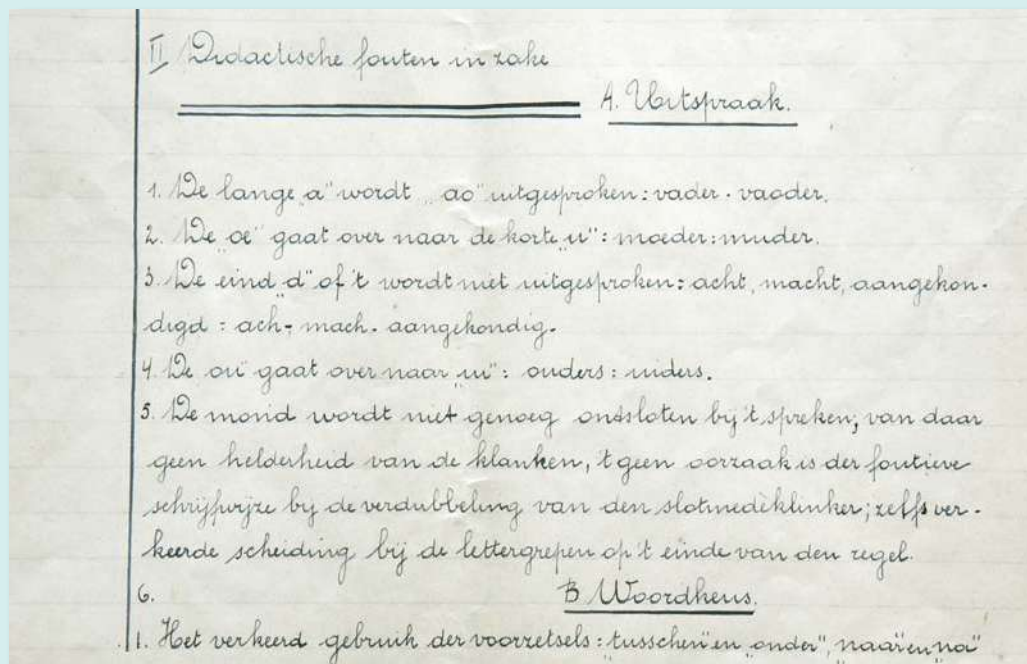 II Didactische fouten in zake
A. Uitspraak.
1. De lange „a" wordt „ao" uitgesproken: vader - vaoder.
2. De „oe" gaat over naar de korte „u": moeder: muder.
3. De eind „d" of 't wordt niet uitgesproken: acht, macht, aangekon-
digd: ach- mach- aangekondig.
4. De „ou" gaat over naar „ui": ouders: uiders.
5. De mond wordt niet genoeg ontsloten bij 't spreken; van daar
geen helderheid van de klanken, 't geen oorzaak is der foutieve
schrijfwijze bij de verdubbeling van den slotmedeklinker; zelfs ver-
keerde scheiding bij de lettergrepen op 't einde van den regel.
6. B Woordkeus.
1. Het verkeerd gebruik der voorzetsels: „tusschen" en „onder", „naar" en „na"